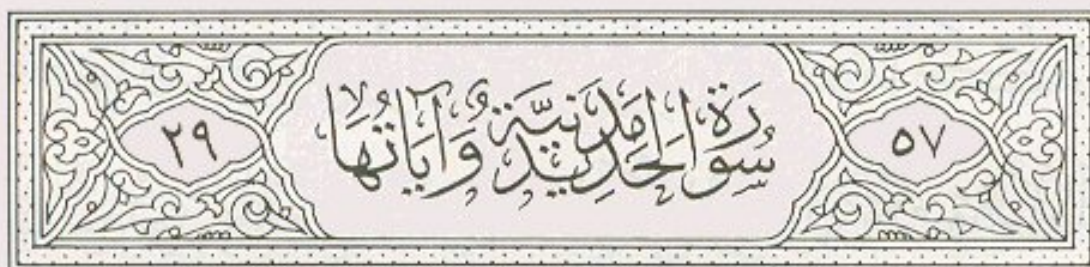 ٥٧
سُورَةُ الحَدِيدِ مَدَنِيَّةٌ وَآيَاتُهَا
٢٩